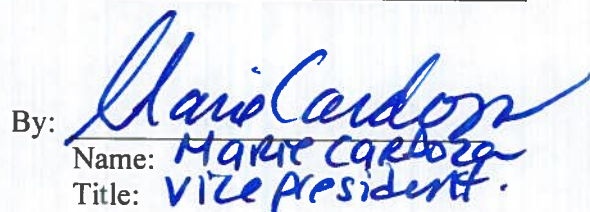 By: Marie Cardoza
Name: Marie Cardoza
Title: Vice President.